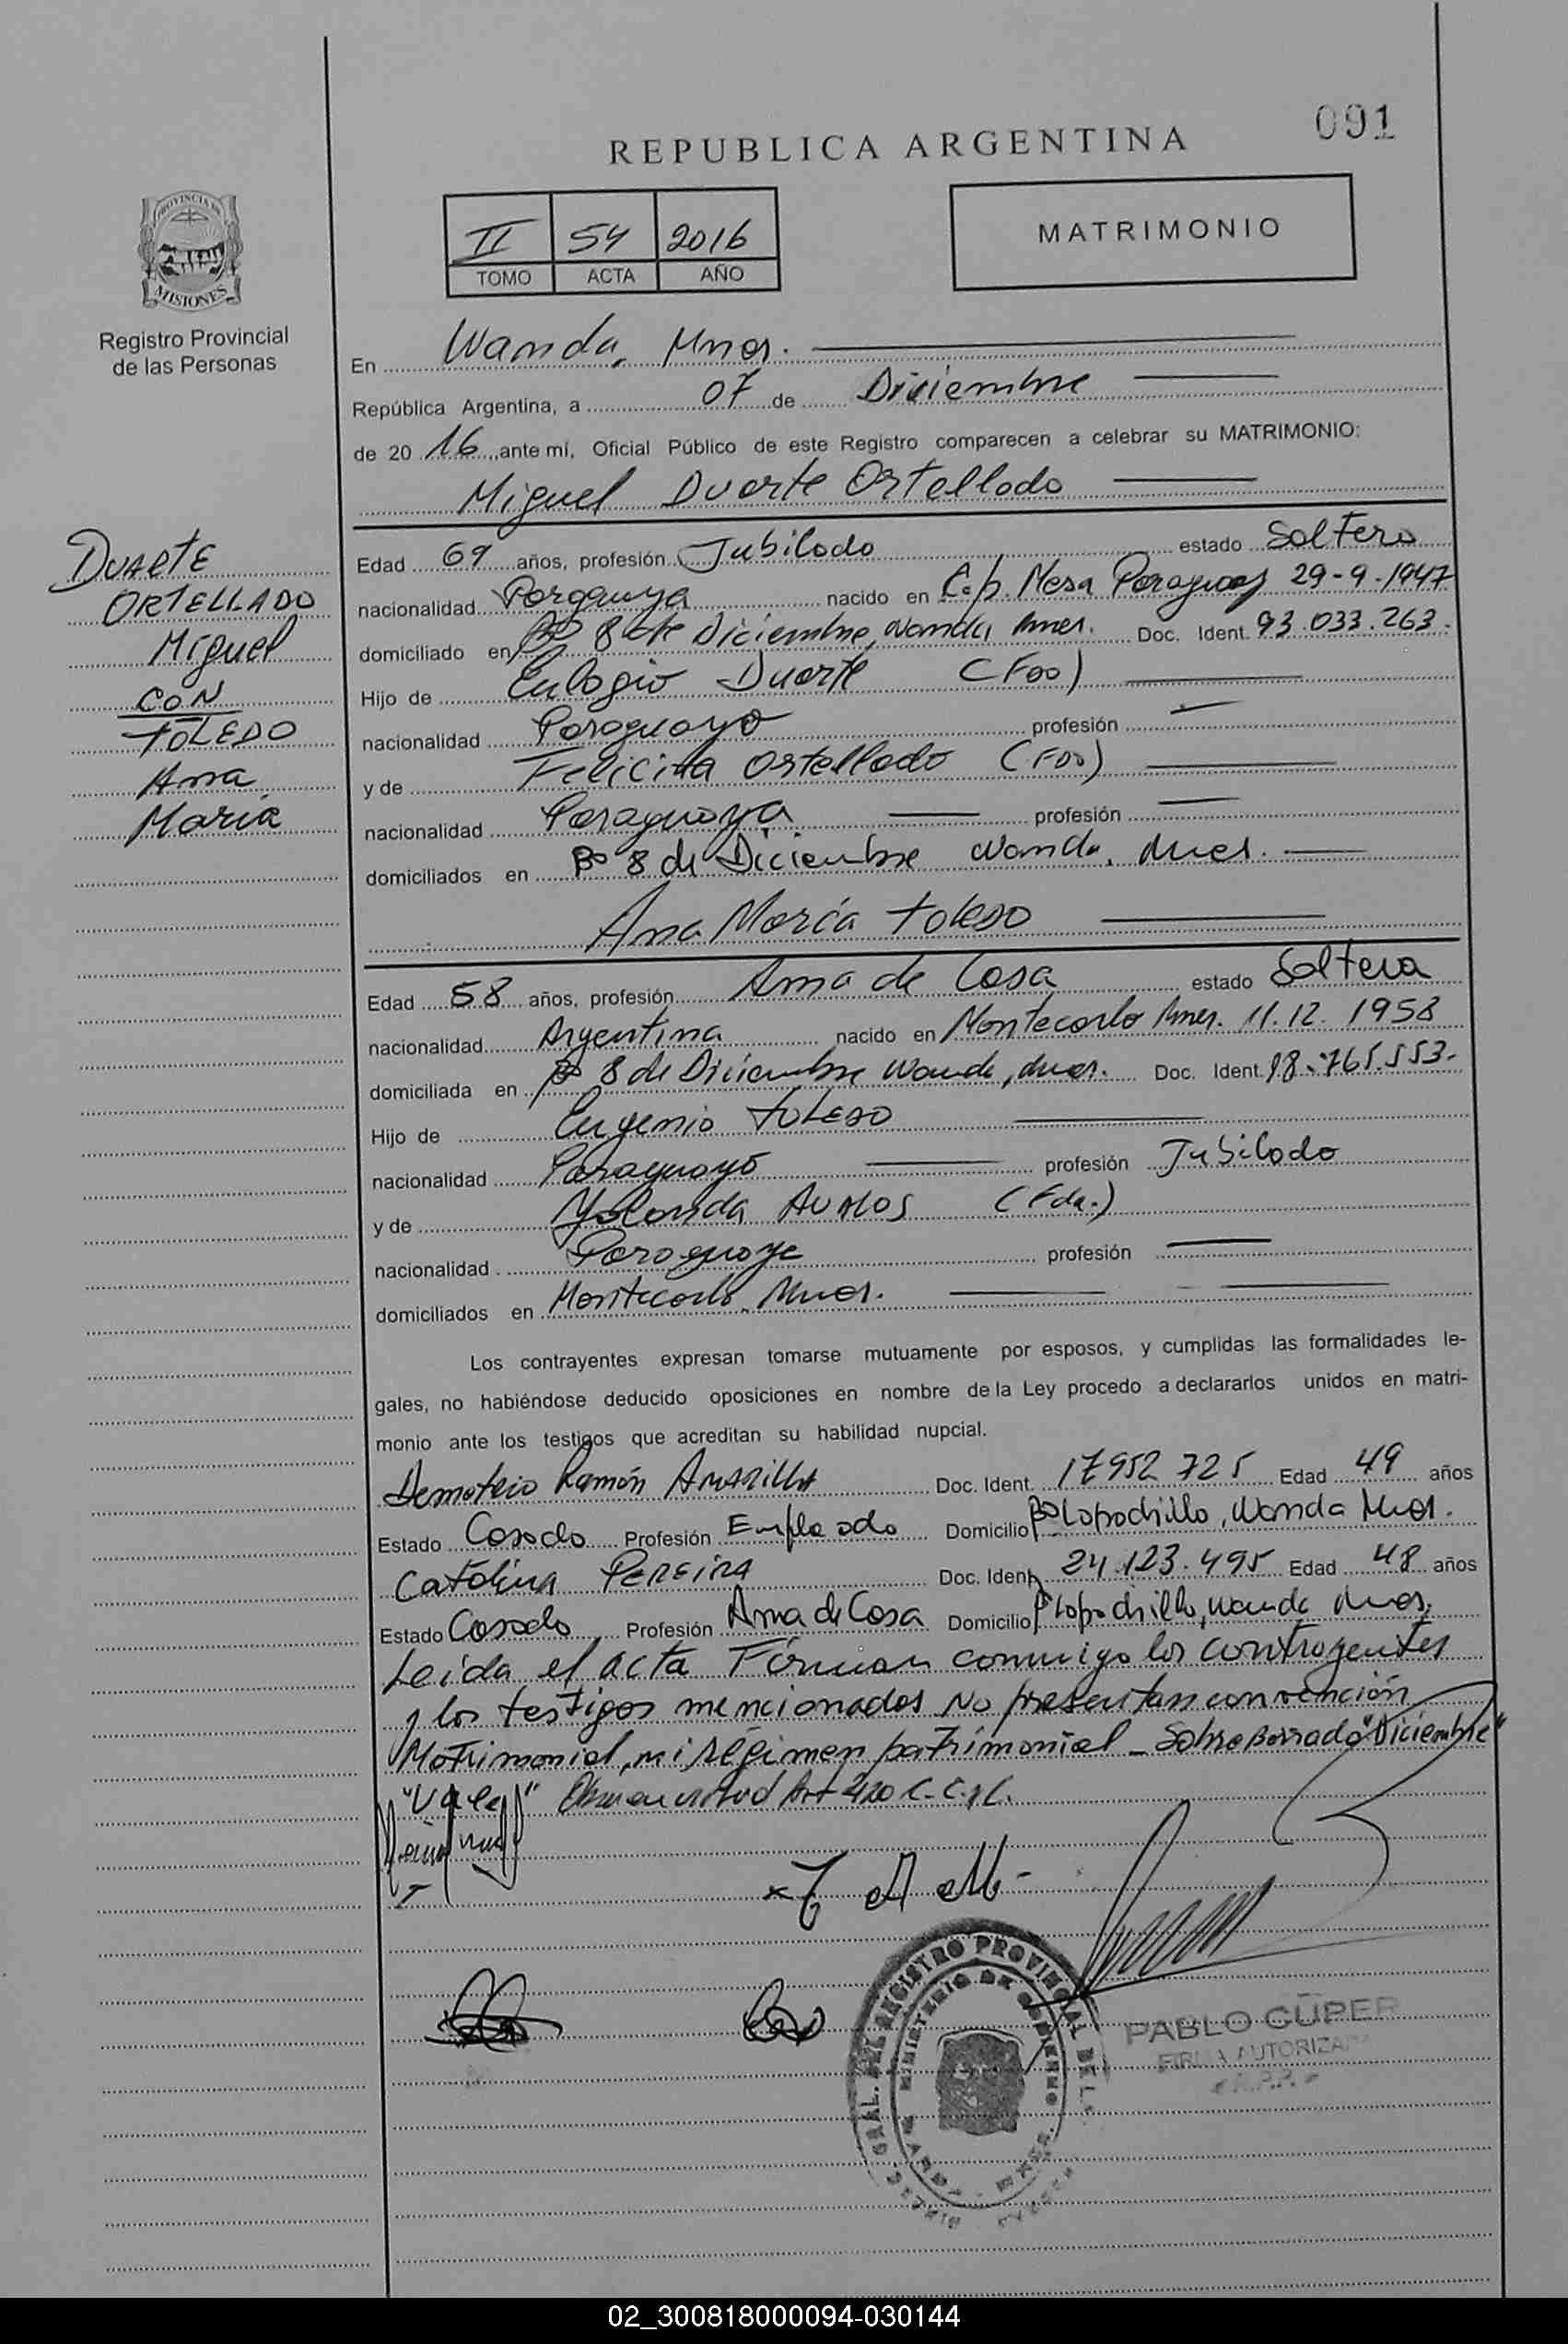 091
REPUBLICA ARGENTINA
PROVINCIA DE
MISIONES
Registro Provincial
de las Personas
II 54 2016
TOMO ACTA AÑO
MATRIMONIO
En Wanda, Mnes.
República Argentina, a 07 de Diciembre
de 20 16 ante mí, Oficial Público de este Registro comparecen a celebrar su MATRIMONIO:
Miguel Duarte Ortellado
DUARTE
ORTELLADO
Miguel
CON
TOLEDO
Ana
María
Edad 69 años, profesión Jubilado estado Soltero
nacionalidad Paraguaya nacido en Mesa Paraguay 29-9-1947
domiciliado en Bº 8 de Diciembre, Wanda, Mnes. Doc. Ident. 93.033.263.
Hijo de Eulogio Duarte (Fdo)
nacionalidad Paraguayo profesión
y de Felicita Ortellado (Fdo)
nacionalidad Paraguaya profesión
domiciliados en Bº 8 de Diciembre Wanda, Mnes.
Ana María Toledo
Edad 58 años, profesión Ama de Casa estado Soltera
nacionalidad Argentina nacido en Montecarlo Mnes. 11.12.1958
domiciliada en Bº 8 de Diciembre Wanda, Mnes. Doc. Ident. 18.765.553.
Hijo de Eugenio Toledo
nacionalidad Paraguayo profesión Jubilado
y de Yolanda Avalos (Fda.)
nacionalidad Paraguaya profesión
domiciliados en Montecarlo, Mnes.
Los contrayentes expresan tomarse mutuamente por esposos, y cumplidas las formalidades le-
gales, no habiéndose deducido oposiciones en nombre de la Ley procedo a declararlos unidos en matri-
monio ante los testigos que acreditan su habilidad nupcial.
Demetrio Ramón Amarilla Doc. Ident. 17952725 Edad 49 años
Estado Casado Profesión Empleado Domicilio Bº Lapachillo, Wanda Mnes.
Catalina Pereira Doc. Ident. 24.123.495 Edad 48 años
Estado Casado Profesión Ama de Casa Domicilio Bº Lapachillo, Wanda Mnes.
Leida el acta Firman conmigo los contrayentes
y los testigos mencionados No presentan convención
Matrimonial, ni régimen patrimonial - Sobre Borrado "Diciembre"
"Vale" Art 420 C.C.
GRAL. DEL REGISTRO PROVINCIAL DE L
MINISTERIO DE GOBIERNO
PABLO CUPER
FIRMA AUTORIZADA
R.P.P.
02_300818000094-030144